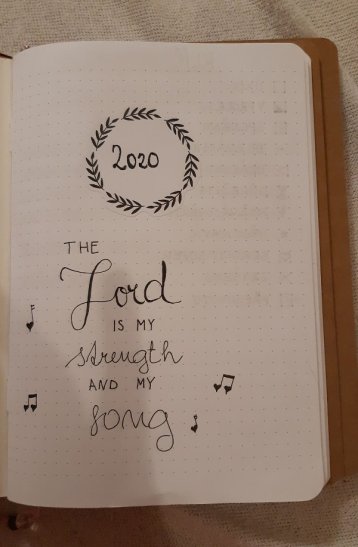 2020
THE
Lord
IS MY
strength
AND MY
song